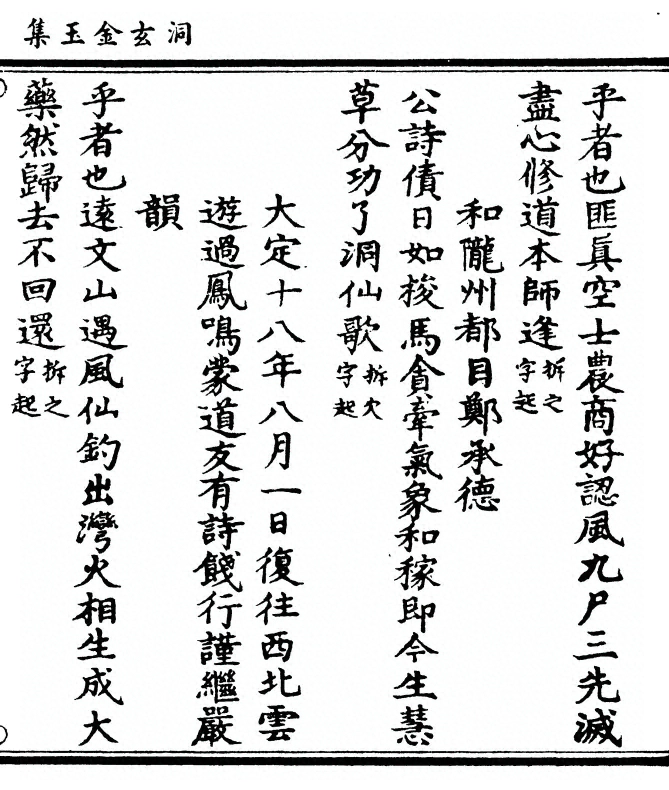 洞玄金玉集
乎者也匪眞空士農商好認風九尸三先滅
盡心修道本師逢拆之字起
和隴州都目鄭承德
公詩債日如梭馬貪牽氣象和稼即今生慧
草分功了洞仙歌拆欠字起
大定十八年八月一日復往西北雲
遊過鳳鳴蒙道友有詩餞行謹繼嚴
韻
乎者也遠文山遇風仙釣出灣火相生成大
藥然歸去不回還拆之字起